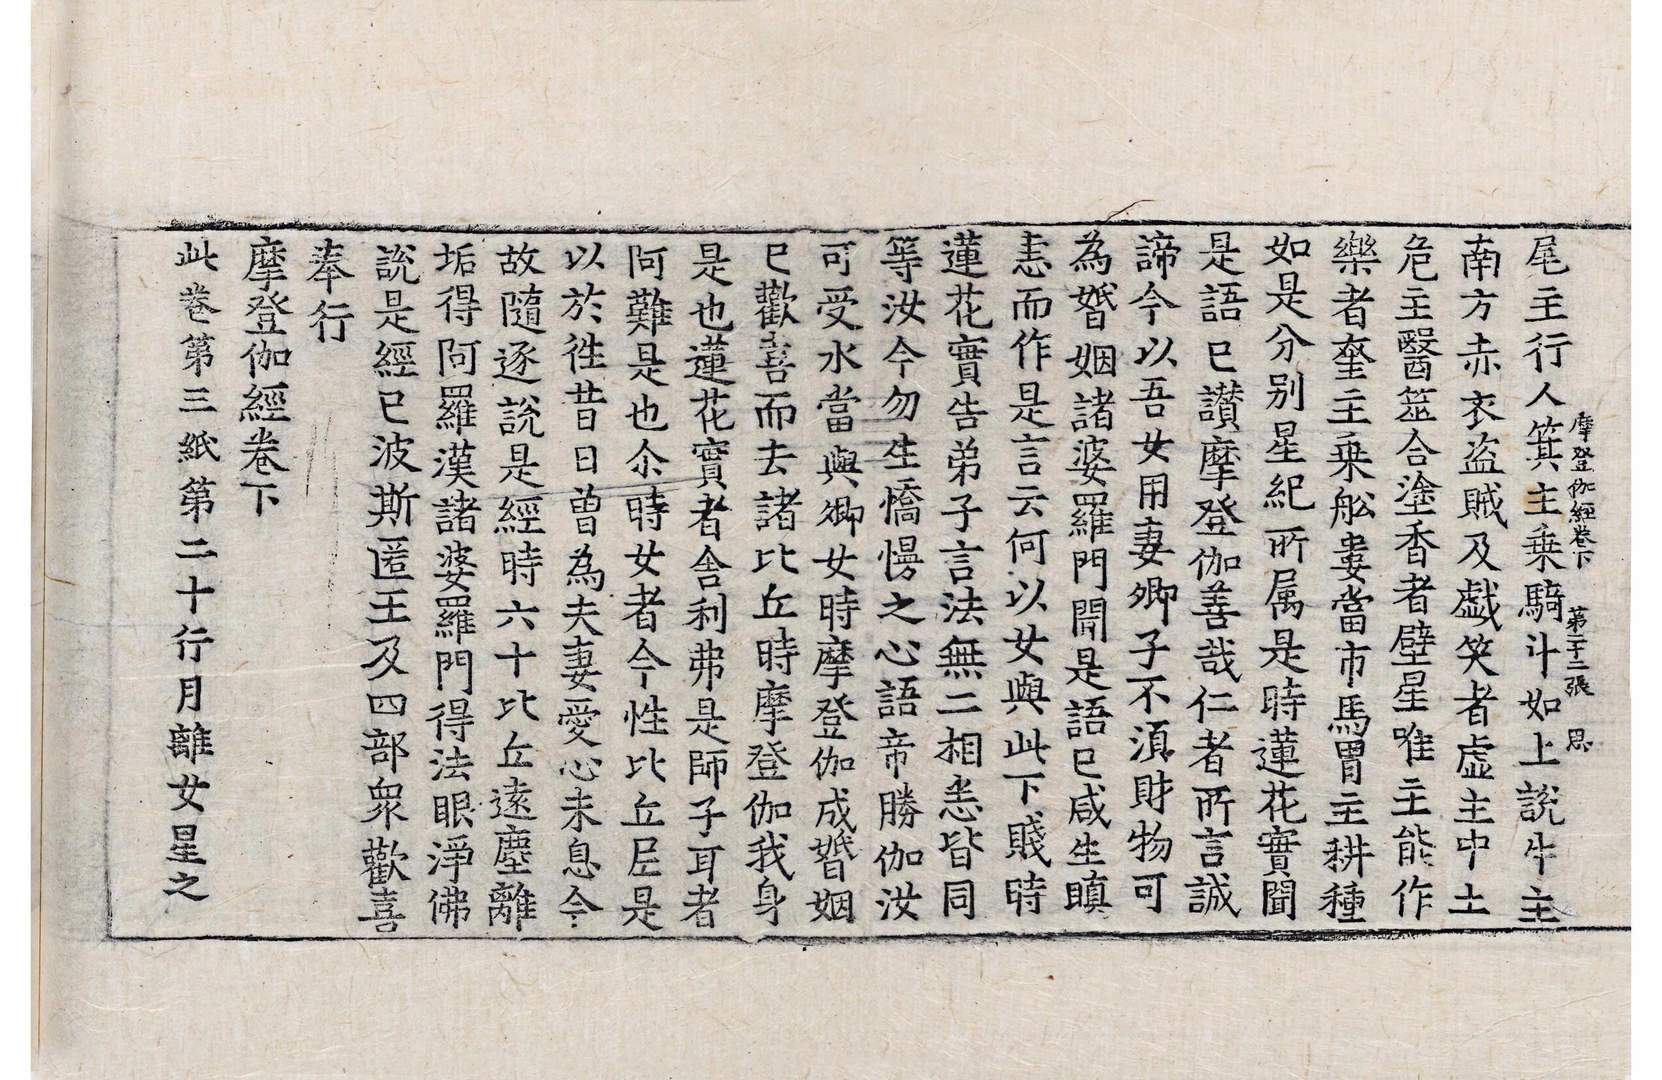 尾主行人箕主乗騎斗如上說牛主
摩登伽經卷下 第二十二張 思
南方赤衣盗賊及戯笑者虚主中土
危主醫筮合塗香者壁星唯主能作
樂者奎主乗舩婁當市馬胃主耕種
如是分别星紀所属是時蓮花實聞
是語已讃摩登伽善哉仁者所言誠
諦今以吾女用妻卿子不湏財物可
為婚姻諸婆羅門聞是語已咸生瞋
恚而作是言云何以女與此下賤時
蓮花實告弟子言法無二相恚皆同
等汝今勿生憍慢之心語帝勝伽汝
可受水當與卿女時摩登伽成婚姻
已歡喜而去諸比丘時摩登伽我身
是也蓮花實者舎利弗是師子耳者
阿難是也尒時女者今性比丘尼是
以於徃昔日曽為夫妻愛心未息今
故隨逐說是經時六十比丘遠塵離
垢得阿羅漢諸婆羅門得法眼淨佛
說是經已波斯匿王及四部衆歡喜
奉行
摩登伽經卷下
此卷第三紙第二十行月離女星之